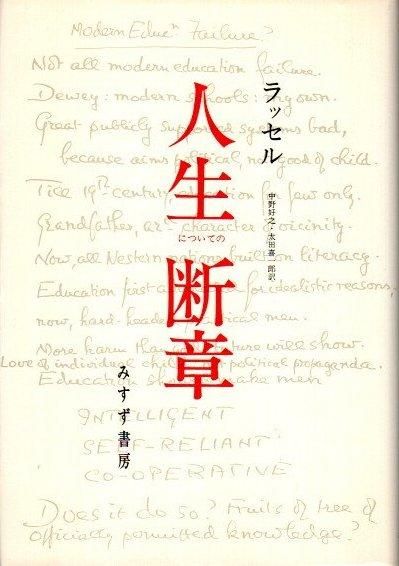 Modern Educⁿ Failure?
Not all modern education failure.
Dewey: modern schools: my own.
Great publicly supported systems bad,
because aims political, not good of child.
Till 19th century education for few only.
Grandfather,
character
Now, all Western nations insist on literacy.
Education first for idealistic reasons,
now, hard-headed political men.
More harm than will show.
Love of individual child political propaganda.
Education make men
INTELLIGENT
SELF-RELIANT
CO-OPERATIVE
Does it do so? Fruits of tree of
officially permitted knowledge?
ラッセル
人生
についての
断章
中野好之・太田喜一郎訳
みすず書房